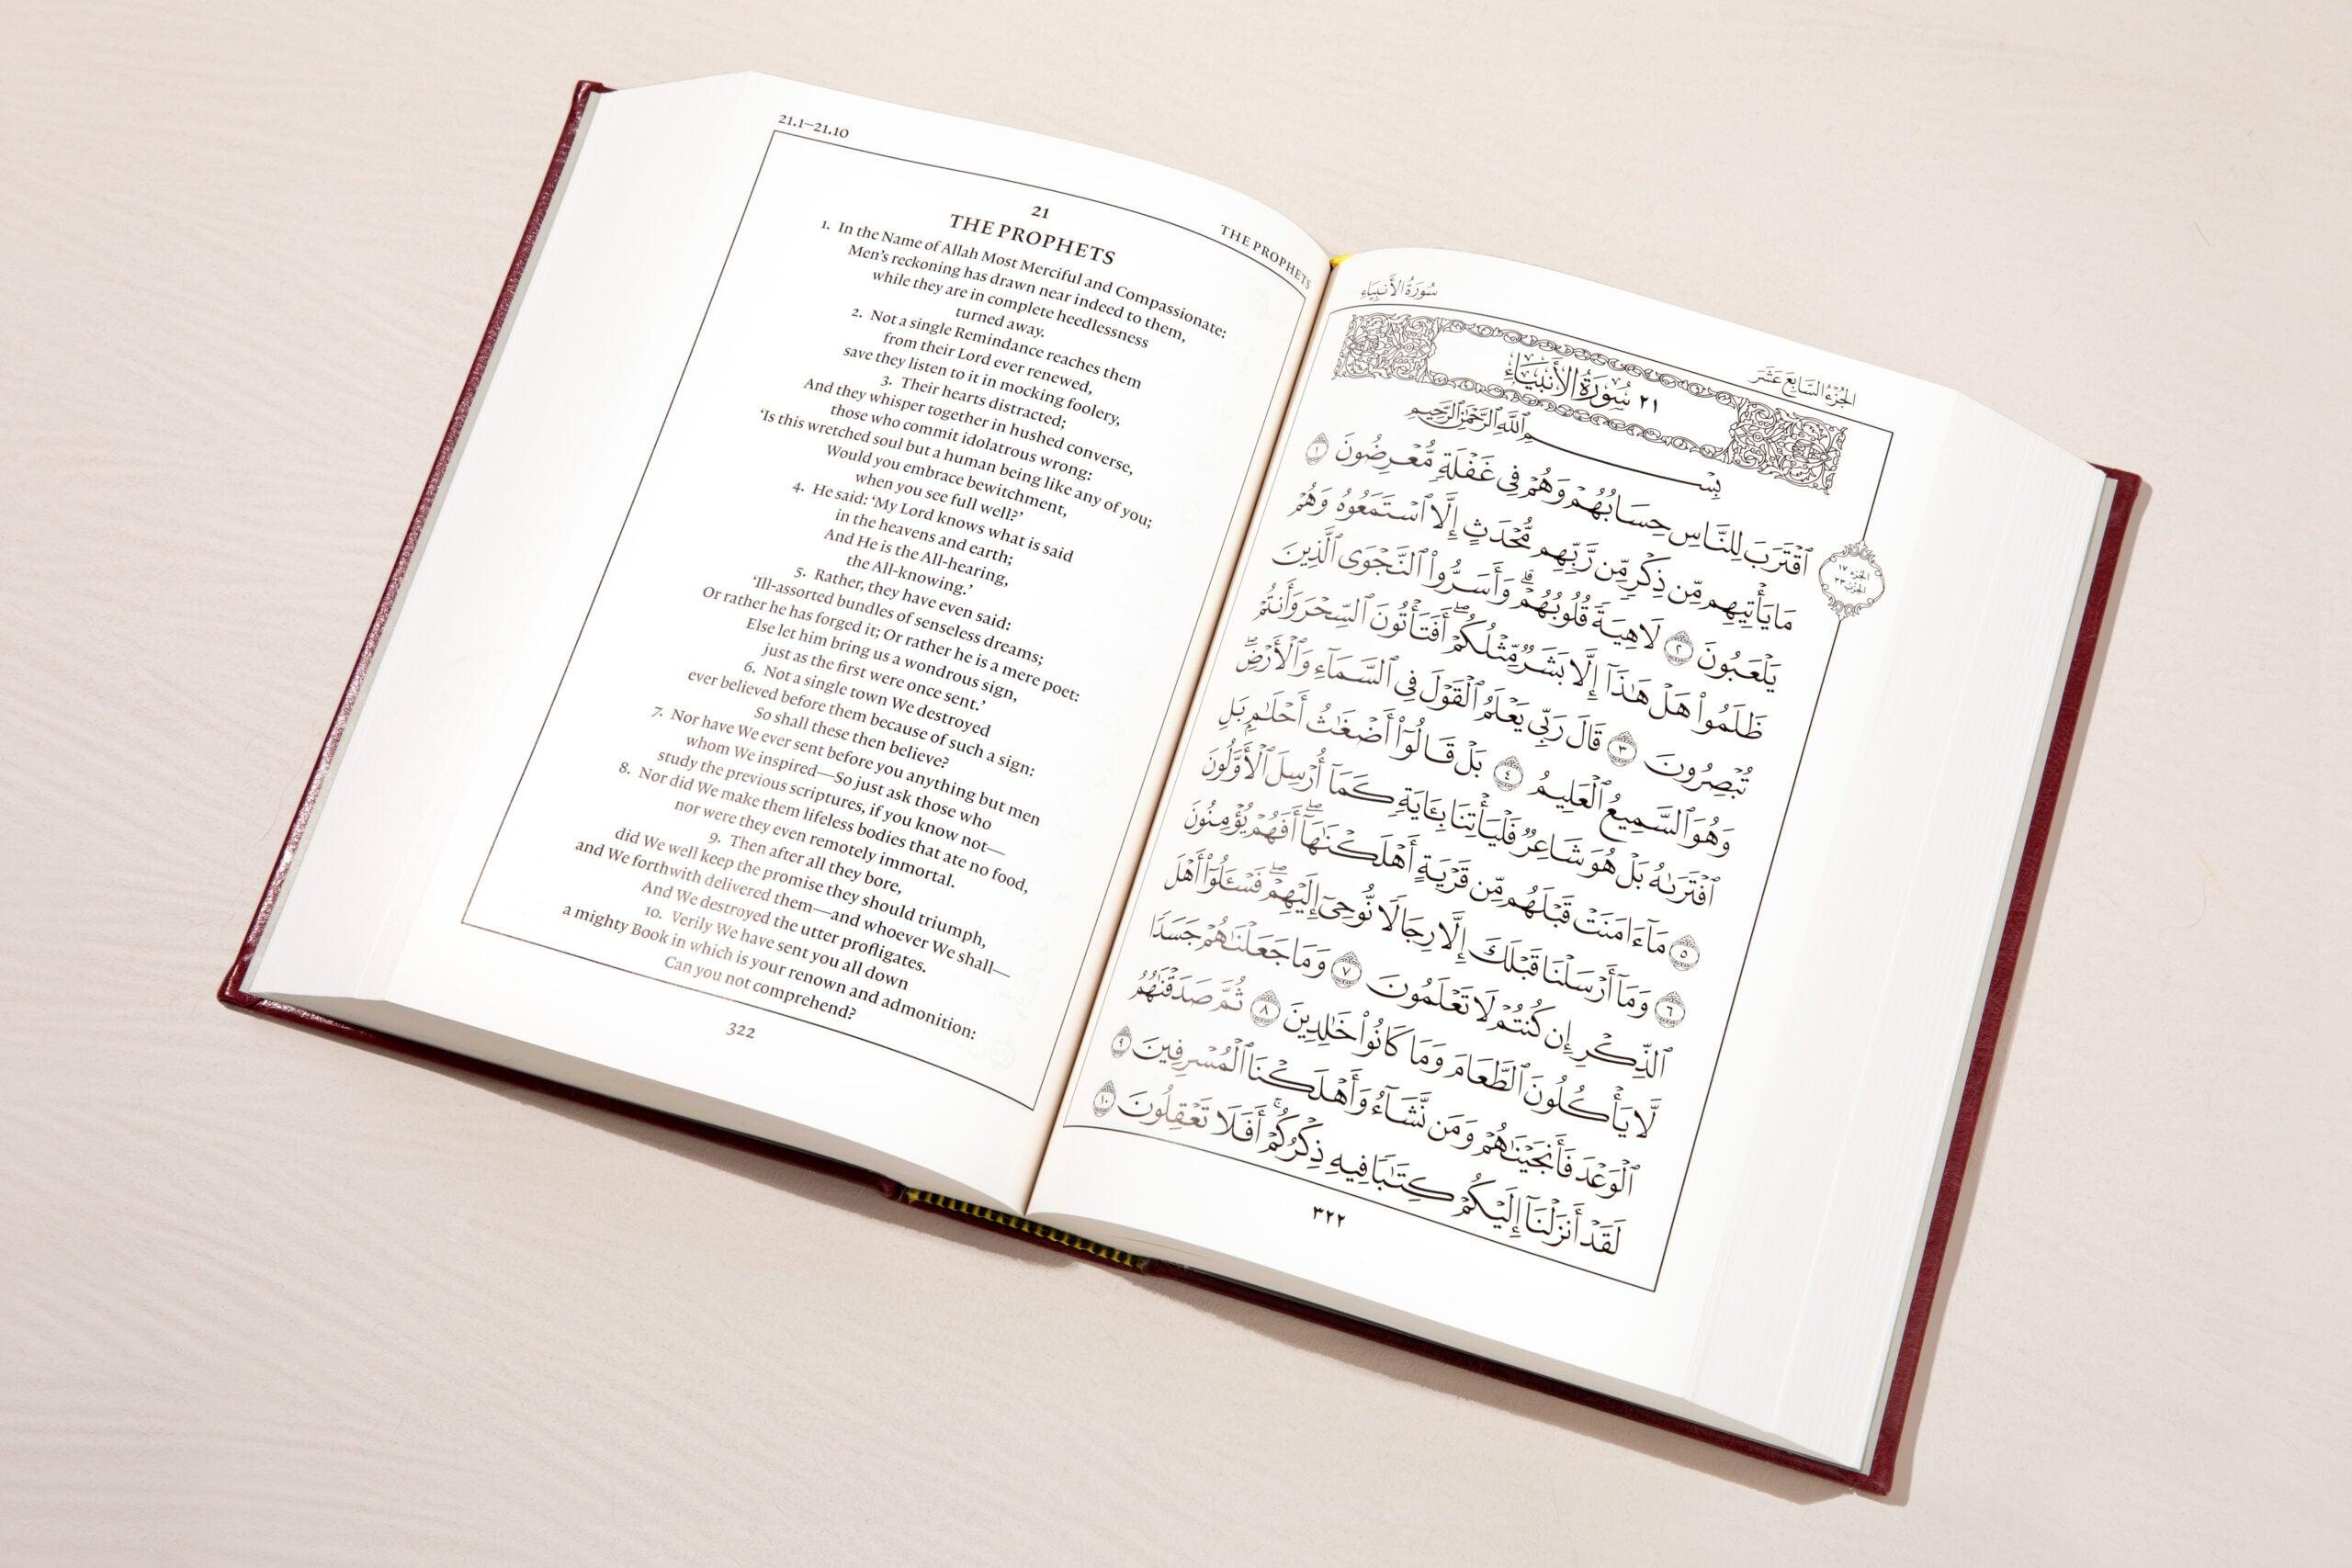 21.1–21.10
THE PROPHETS
21
THE PROPHETS
1. In the Name of Allah Most Merciful and Compassionate:
Men's reckoning has drawn near indeed to them,
while they are in complete heedlessness
turned away.
2. Not a single Remindance reaches them
from their Lord ever renewed,
save they listen to it in mocking foolery,
3. Their hearts distracted;
And they whisper together in hushed converse,
those who commit idolatrous wrong:
'Is this wretched soul but a human being like any of you;
Would you embrace bewitchment,
when you see full well?'
4. He said: 'My Lord knows what is said
in the heavens and earth;
And He is the All-hearing,
the All-knowing.'
5. Rather, they have even said:
'Ill-assorted bundles of senseless dreams;
Or rather he has forged it; Or rather he is a mere poet:
Else let him bring us a wondrous sign,
just as the first were once sent.'
6. Not a single town We destroyed
ever believed before them because of such a sign:
So shall these then believe?
7. Nor have We ever sent before you anything but men
whom We inspired—So just ask those who
study the previous scriptures, if you know not—
8. Nor did We make them lifeless bodies that ate no food,
nor were they even remotely immortal.
9. Then after all they bore,
did We well keep the promise they should triumph,
and We forthwith delivered them—and whoever We shall—
And We destroyed the utter profligates.
10. Verily We have sent you all down
a mighty Book in which is your renown and admonition:
Can you not comprehend?
322
الجُزْءُ السَّابِعَ عَشَرَ
سُورَةُ الأَنبِيَاءِ
٢١ سُورَةُ الأَنبِيَاءِ
بِسْمِ ٱللَّهِ ٱلرَّحْمَٰنِ ٱلرَّحِيمِ
ٱقْتَرَبَ لِلنَّاسِ حِسَابُهُمْ وَهُمْ فِى غَفْلَةٍ مُّعْرِضُونَ ١
مَا يَأْتِيهِم مِّن ذِكْرٍ مِّن رَّبِّهِم مُّحْدَثٍ إِلَّا ٱسْتَمَعُوهُ وَهُمْ
يَلْعَبُونَ ٢ لَاهِيَةً قُلُوبُهُمْ ۗ وَأَسَرُّوا۟ ٱلنَّجْوَى ٱلَّذِينَ
ظَلَمُوا۟ هَلْ هَٰذَآ إِلَّا بَشَرٌ مِّثْلُكُمْ ۖ أَفَتَأْتُونَ ٱلسِّحْرَ وَأَنتُمْ
تُبْصِرُونَ ٣ قَالَ رَبِّى يَعْلَمُ ٱلْقَوْلَ فِى ٱلسَّمَآءِ وَٱلْأَرْضِ ۖ
وَهُوَ ٱلسَّمِيعُ ٱلْعَلِيمُ ٤ بَلْ قَالُوٓا۟ أَضْغَٰثُ أَحْلَٰمٍ بَلِ
ٱفْتَرَىٰهُ بَلْ هُوَ شَاعِرٌ فَلْيَأْتِنَا بِـَٔايَةٍ كَمَآ أُرْسِلَ ٱلْأَوَّلُونَ
٥ مَآ ءَامَنَتْ قَبْلَهُم مِّن قَرْيَةٍ أَهْلَكْنَٰهَآ ۖ أَفَهُمْ يُؤْمِنُونَ
٦ وَمَآ أَرْسَلْنَا قَبْلَكَ إِلَّا رِجَالًا نُّوحِىٓ إِلَيْهِمْ ۖ فَسْـَٔلُوٓا۟ أَهْلَ
ٱلذِّكْرِ إِن كُنتُمْ لَا تَعْلَمُونَ ٧ وَمَا جَعَلْنَٰهُمْ جَسَدًا
لَّا يَأْكُلُونَ ٱلطَّعَامَ وَمَا كَانُوا۟ خَٰلِدِينَ ٨ ثُمَّ صَدَقْنَٰهُمُ
ٱلْوَعْدَ فَأَنجَيْنَٰهُمْ وَمَن نَّشَآءُ وَأَهْلَكْنَا ٱلْمُسْرِفِينَ ٩
لَقَدْ أَنزَلْنَآ إِلَيْكُمْ كِتَٰبًا فِيهِ ذِكْرُكُمْ ۖ أَفَلَا تَعْقِلُونَ ١٠
الجزء ١٧
الحزب ٣٣
٣٢٢